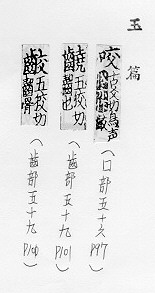 玉篇
咬 古爻切鳥声
(口部五十六 P97)
䶧 五狡切
(齒部五十九 P101)
齩 五狡切
齧骨
(齒部五十九 P100)